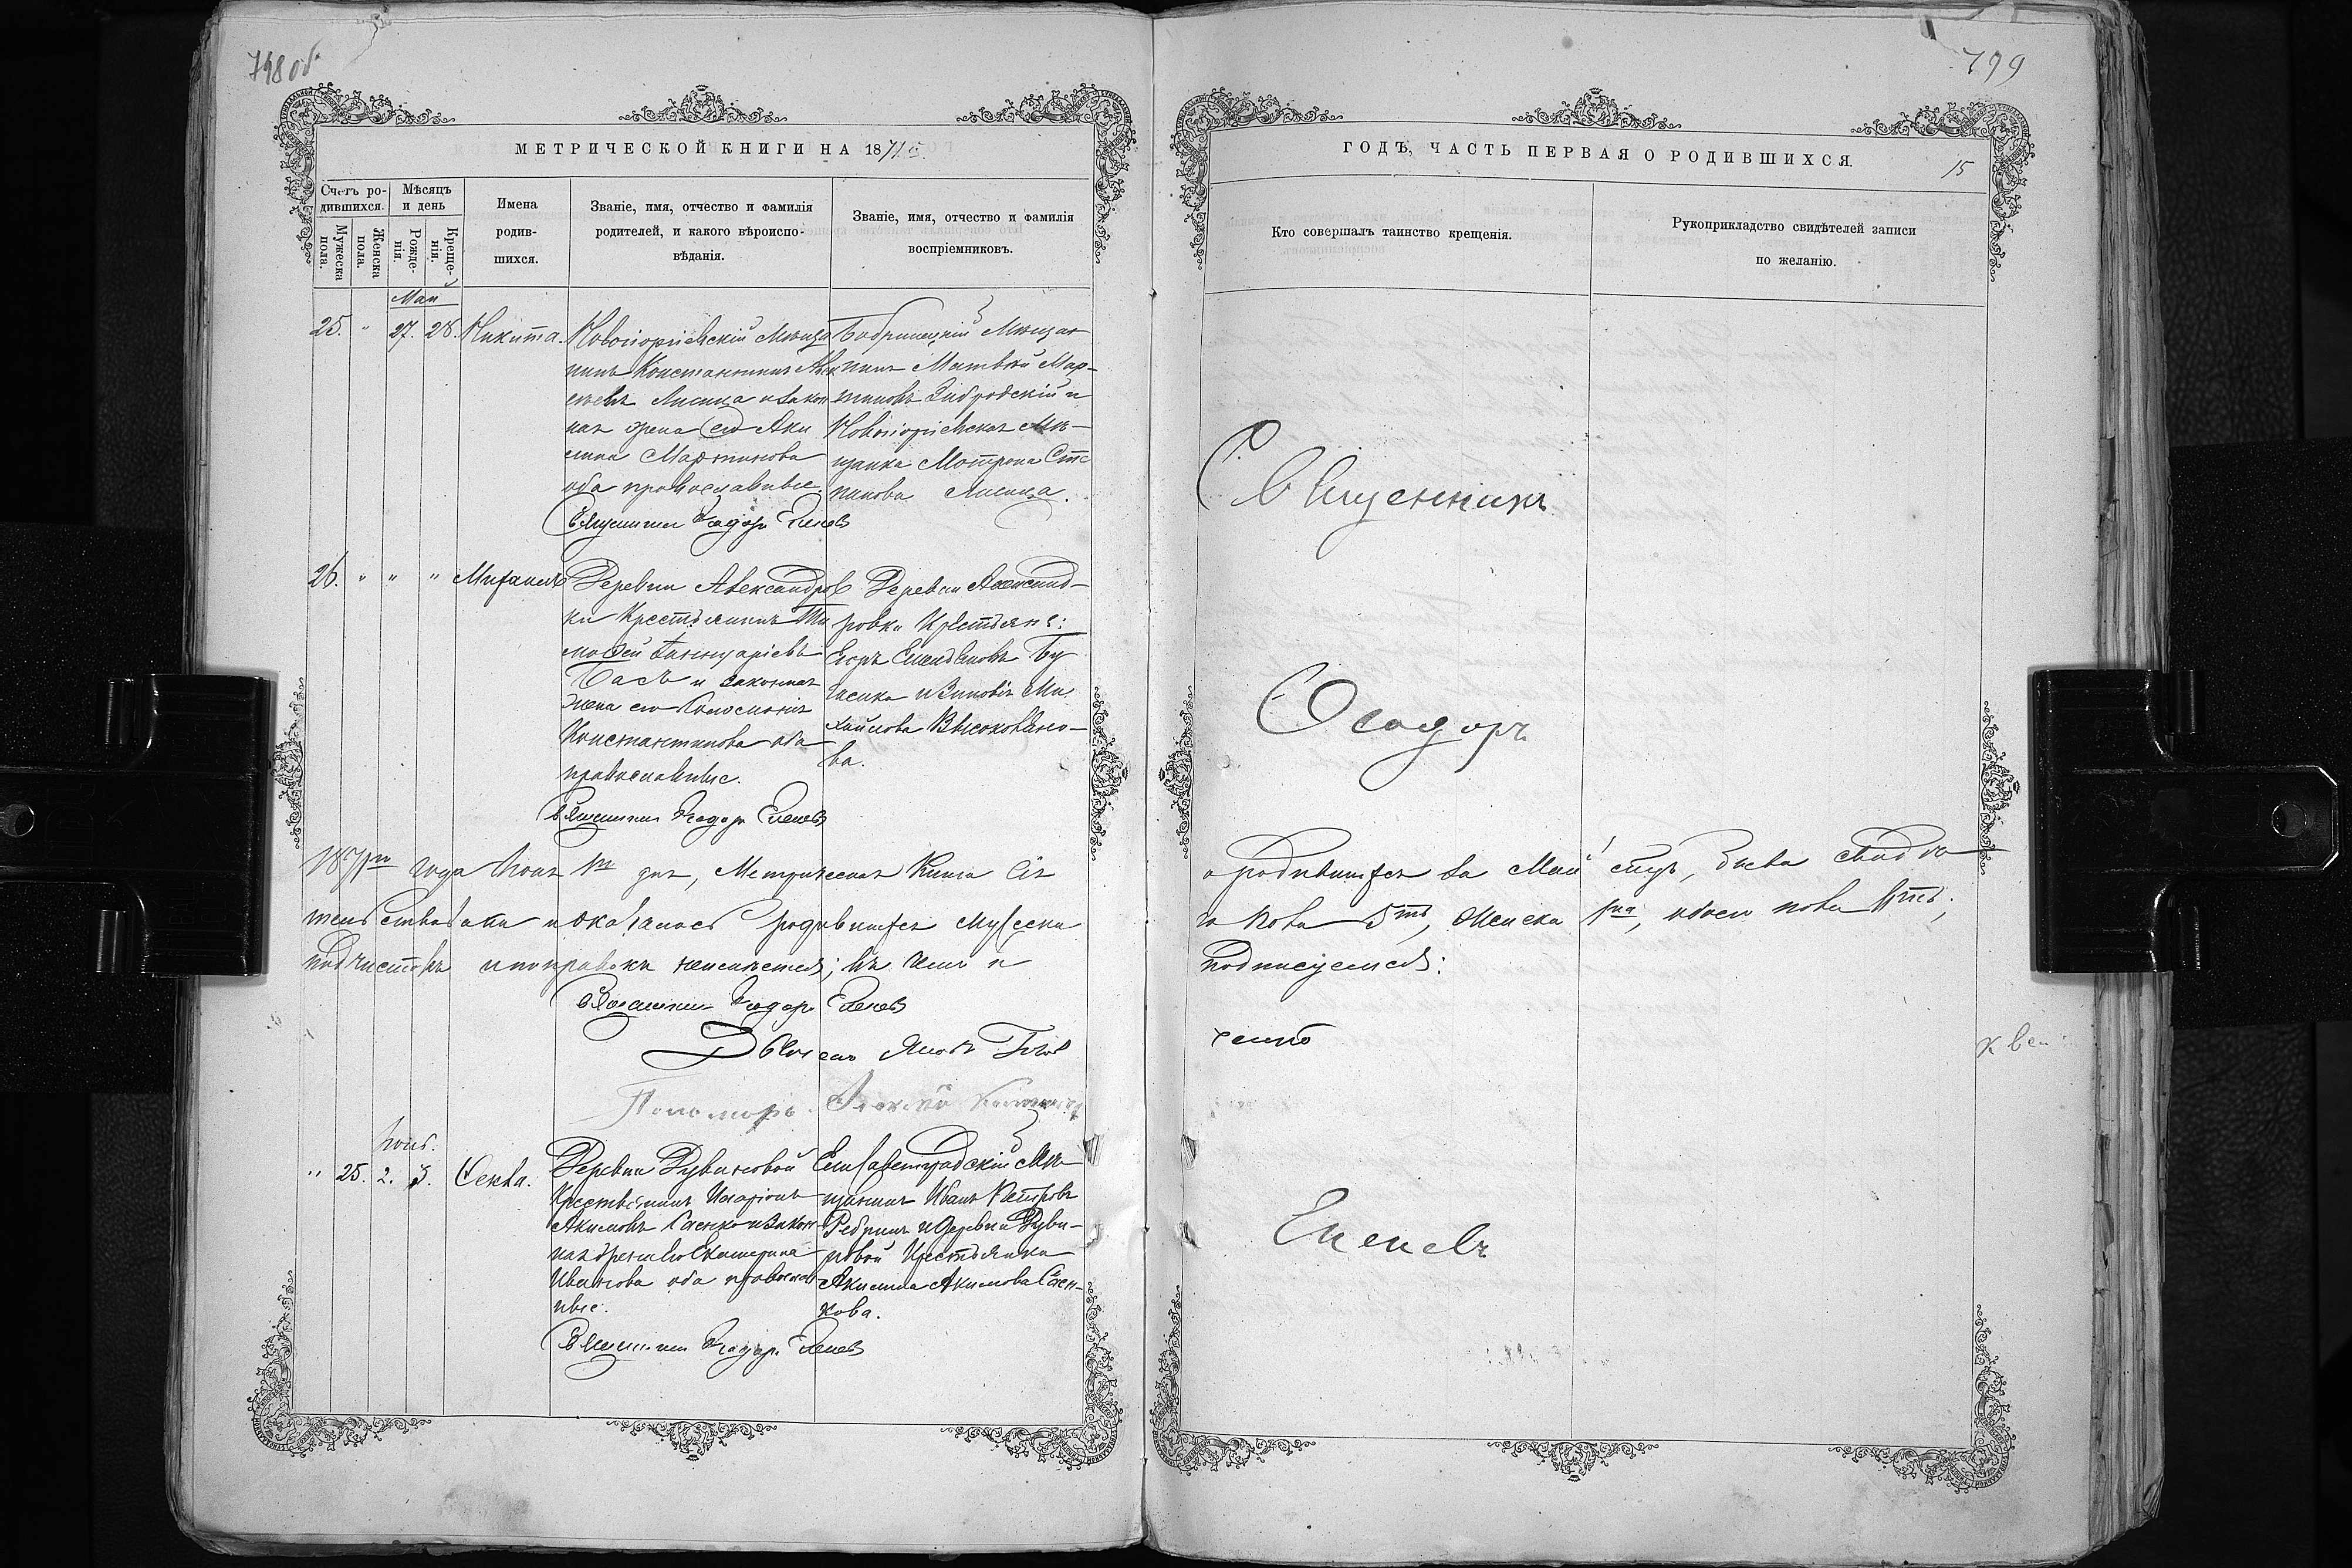 798 об
МЕТРИЧЕСКОЙ КНИГИ НА 1871й
Счетъ родившихся.
Мужеска пола.
Женска пола.
Мѣсяцъ и день
Рожденія.
Крещенія.
Имена родившихся.
Званіе, имя, отчество и фамилія родителей, и какого вѣроисповѣданія.
Званіе, имя, отчество и фамилія воспріемниковъ.
Май
25. " 27. 28. Никита.
Новогеоргіевскій Мѣща
нинъ Константинъ
Лисица и закон
ная жена его Аки
лина Мартинова
оба православные.
Священникъ Ѳеодоръ Еленевъ
Бобринецкій Мѣщан
нинъ Матвѣй Мар-
тиновъ Зибродскій и
Новогеоргіевская Мѣ-
щанка Мотрона Сте
панова Лисица.
26. " " " Михаилъ
Деревни Александров
ки Крестьянинъ Ти
мофей
Басъ и законная
жена его Соломонія
Константинова оба
православные.
Священникъ Ѳеодоръ Еленевъ
Деревни Александ-
ровки Крестьяне:
Егоръ
и Зиновія Ми
хайлова
ва.
1871го года Іюня 1го дня, Метрическая Книга сія
тельствована и оказалось родившихся Мужеска
подчистокъ и поправокъ неимѣется; въ чемъ и
Священникъ Ѳеодоръ Еленевъ
Яковъ
Пономарь Алексѣй
Іюнь.
" 25. 2. 3. Ѳекла.
Деревни Рувиновой
Крестьянинъ Иларіонъ
Акимовъ Саенко и закон
ная жена его Екатерина
Иванова оба православ
ные.
Священникъ Ѳеодоръ Еленевъ
Елисаветградскій Мѣ-
щанинъ Иванъ Петровъ
и Деревни Руви-
новой Крестьянка
Акилина Акимова Саен-
кова.
799
ГОДЪ, ЧАСТЬ ПЕРВАЯ О РОДИВШИХСЯ.
15
Кто совершалъ таинство крещенія.
Рукоприкладство свидѣтелей записи по желанію.
Священникъ
Ѳеодоръ
о родившихся за Май мцъ, была свидѣ
го пола 5ть, Женска 1на, обоего пола 6ть;
подписуемся:
Еленевъ